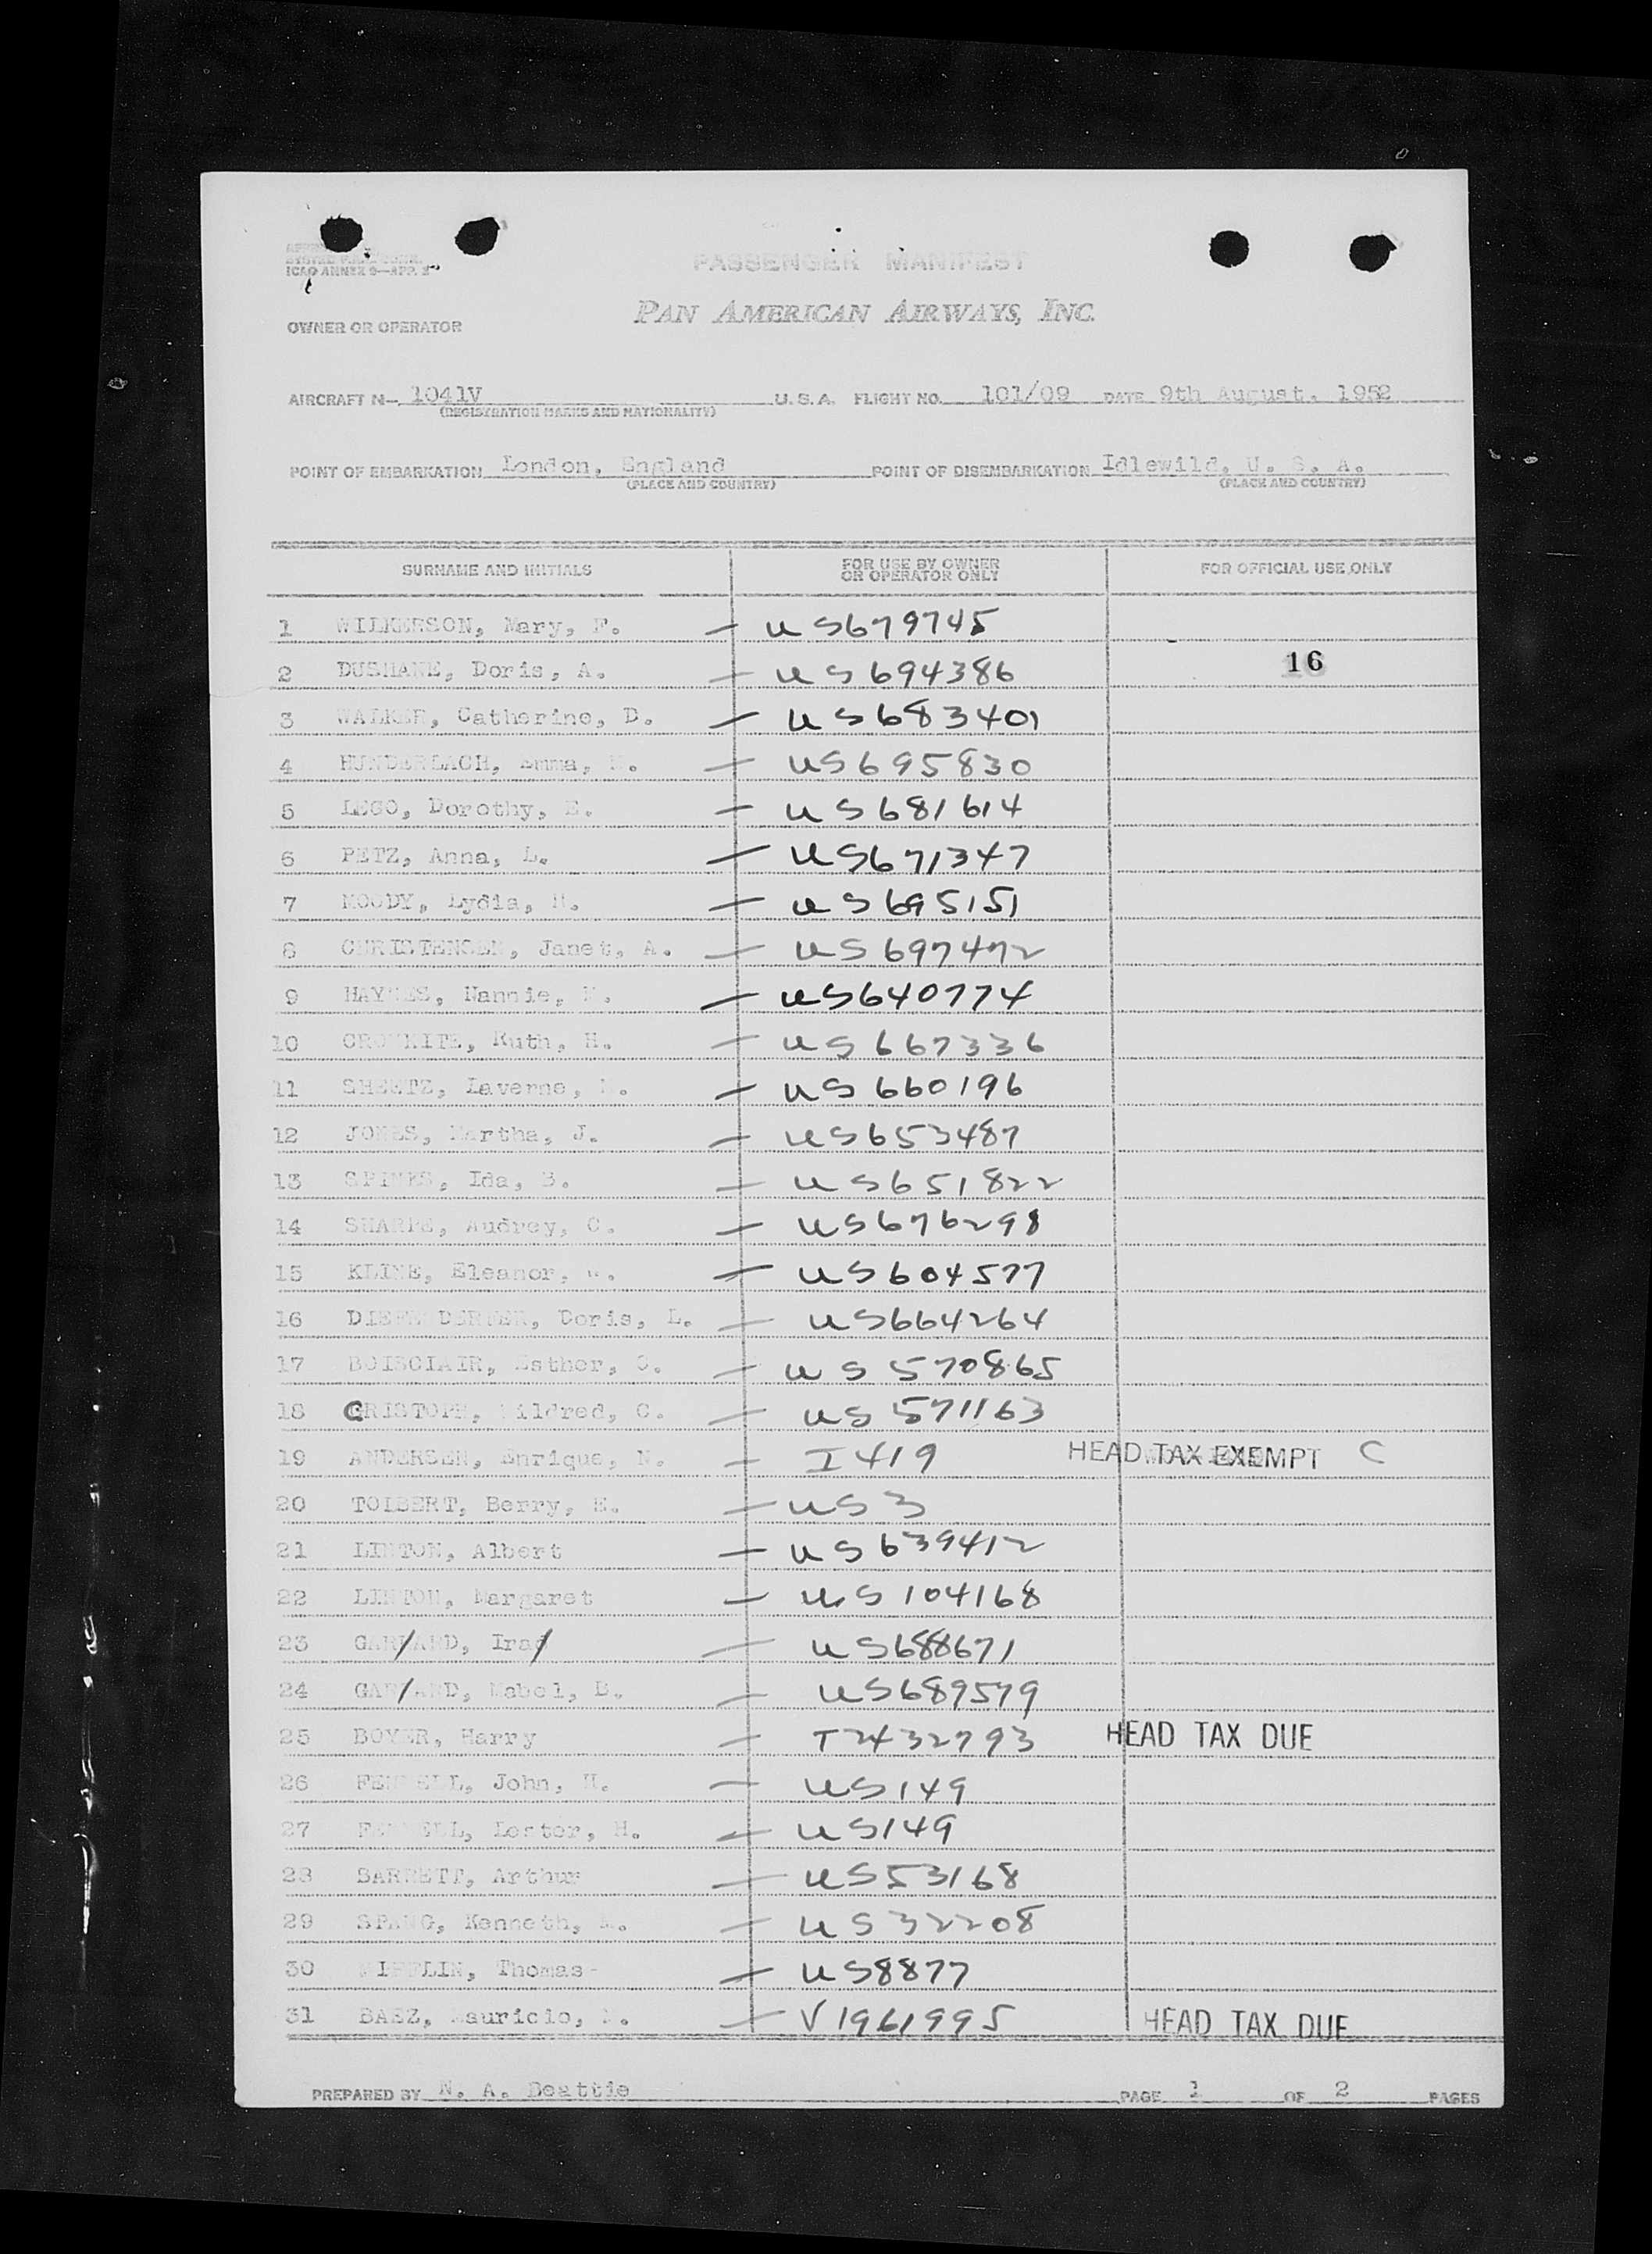 ICAO ANNEX 9—APP. 3
PASSENGER MANIFEST
PAN AMERICAN AIRWAYS, INC.
OWNER OR OPERATOR
AIRCRAFT N— 1041V U. S. A. FLIGHT NO. 101/09 DATE 9th August, 1952
(REGISTRATION MARKS AND NATIONALITY)
POINT OF EMBARKATION London, England POINT OF DISEMBARKATION Idlewild, U. S. A.
(PLACE AND COUNTRY) (PLACE AND COUNTRY)
SURNAME AND INITIALS FOR USE BY OWNER OR OPERATOR ONLY FOR OFFICIAL USE ONLY
1 WILKERSON, Mary, F. — US679745
2 DUSHANE, Doris, A. — US694386 16
3 WALKER, Catherine, D. — US683401
4 HUNDERLACH, Emma, — US695830
5 LEGO, Dorothy, E. — US681614
6 PETZ, Anna, L. — US671347
7 MOODY, Lydia, — US695151
8 CHRISTENSEN, Janet, A. — US697472
9 HAYNES, Nannie, — US640774
10 CRONKITE, Ruth, H. — US667336
11 SHEETZ, Laverne, — US660196
12 JONES, Martha, J. — US653487
13 Ida, B. — US651822
14 SHARPE, Audrey, C. — US676298
15 KLINE, Eleanor, — US604577
16 DIEFENDERFER, Doris, L. — US664264
17 BOISCLAIR, Esther, — US570865
18 CRISTOPH, Mildred, C. — US571163
19 ANDERSEN, Enrique, N. — I419 HEAD TAX EXEMPT C
20 TOLBERT, Berry, E. — US3
21 LINTON, Albert — US639412
22 LINTON, Margaret — US104168
23 GARLAND, Ira — US688671
24 GARLAND, Mabel, B. — US689579
25 BOYER, Harry — T2432793 HEAD TAX DUE
26 FENNELL, John, H. — US149
27 FENNELL, Lester, H. — US149
28 BARRETT, Arthur — US53168
29 SPANG, Kenneth, — US32208
30 Thomas — US8877
31 BAEZ, Mauricio, — V1961995 HEAD TAX DUE
PREPARED BY N. A. Beattie PAGE 1 OF 2 PAGES